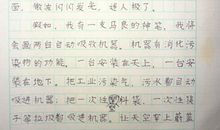 面，微波闪闪发光，迷人极了。
假如，我有一支马良的神笔，我得
会画两台自动吸收机器，机器有消化污
染物的功能，一台安装在天上，一台安
装在地下。把工业污染气，污水都自动
吸进机器；把一次性料袋，一次性筷
子等垃圾都吸进机器。让天空穿上蔚蓝